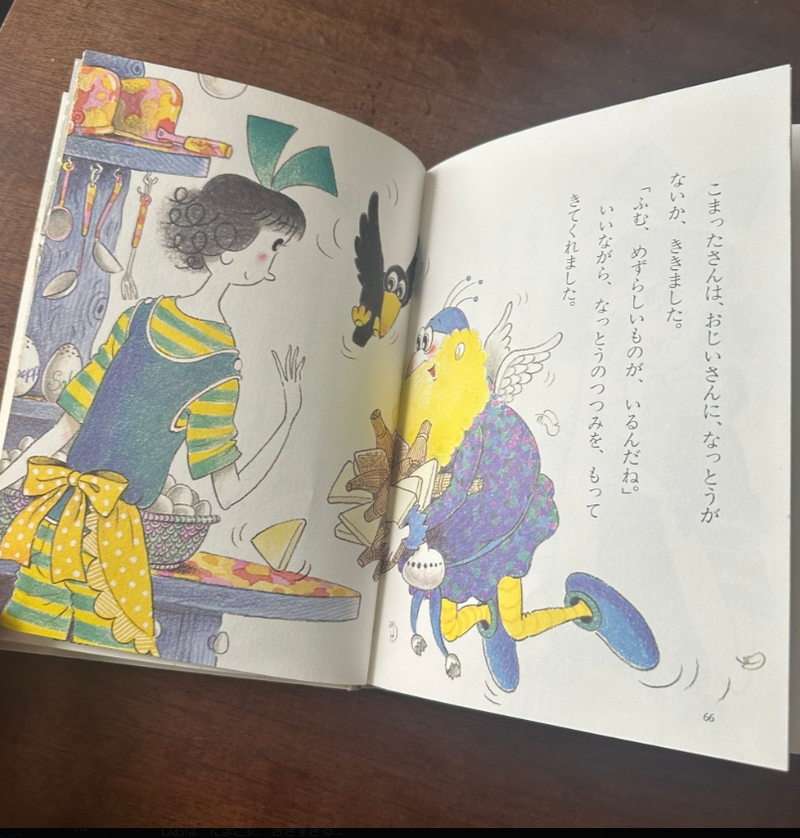 こまったさんは、おじいさんに、なっとうが
ないか、ききました。
「ふむ、めずらしいものが、いるんだね。」
いいながら、なっとうのつつみを、もって
きてくれました。
66